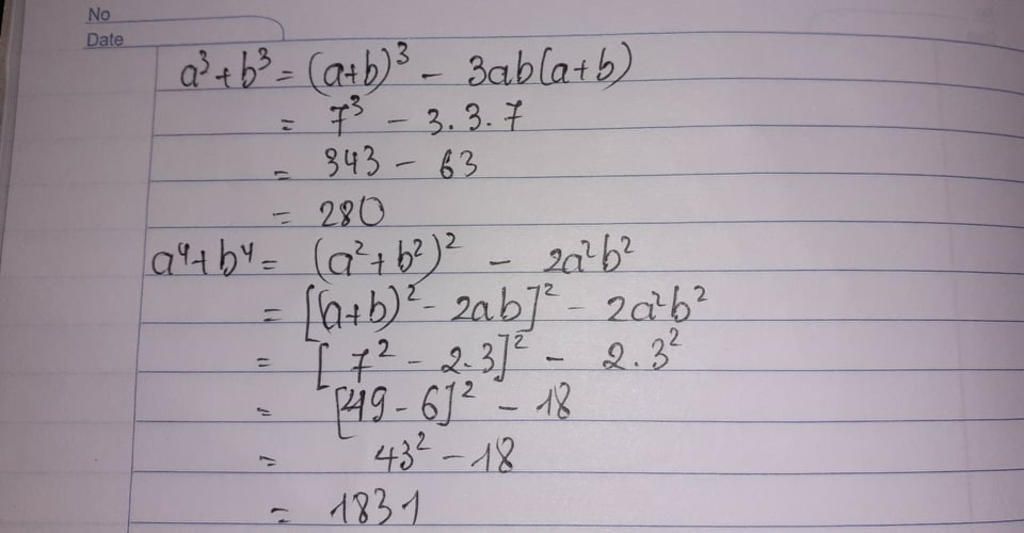 No
Date
a³+b³ = (a+b)³ - 3ab(a+b)
= 7³ - 3.3.7
= 343 - 63
= 280
a⁴+b⁴ = (a²+b²)² - 2a²b²
= [(a+b)² - 2ab]² - 2a²b²
= [7² - 2.3]² - 2.3²
= [49 - 6]² - 18
= 43² - 18
= 1831